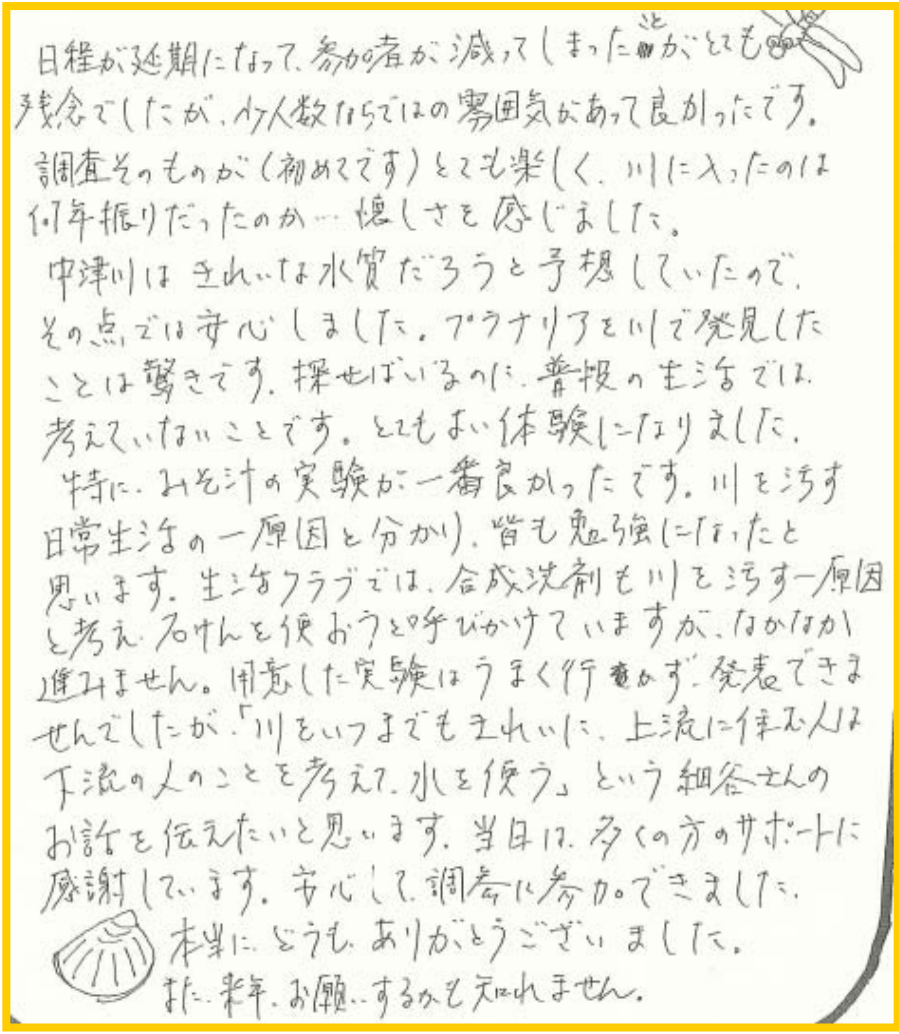 日程が延期になって、参加者が減ってしまったことがとても
残念でしたが、少人数ならではの雰囲気があって良かったです。
調査そのものが(初めてです)とても楽しく、川に入ったのは
何年振りだったのか…懐しさを感じました。
中津川はきれいな水質だろうと予想していたので、
その点では安心しました。プラナリアを川で発見した
ことは驚きです。探せばいるのに、普段の生活では
考えていないことです。とてもよい体験になりました。
特に、みそ汁の実験が一番良かったです。川を汚す
日常生活の一原因と分かり、皆も勉強になったと
思います。生活クラブでは、合成洗剤も川を汚す一原因
と考え、石けんを使おうと呼びかけていますが、なかなか
進みません。用意した実験はうまく行かず、発表できま
せんでしたが、「川をいつまでもきれいに、上流に住む人は
下流の人のことを考えて、水を使う」という細谷さんの
お話を伝えたいと思います。当日は、多くの方のサポートに
感謝しています。安心して、調査に参加できました。
本当に、どうも、ありがとうございました。
また、来年、お願いするかも知れません。